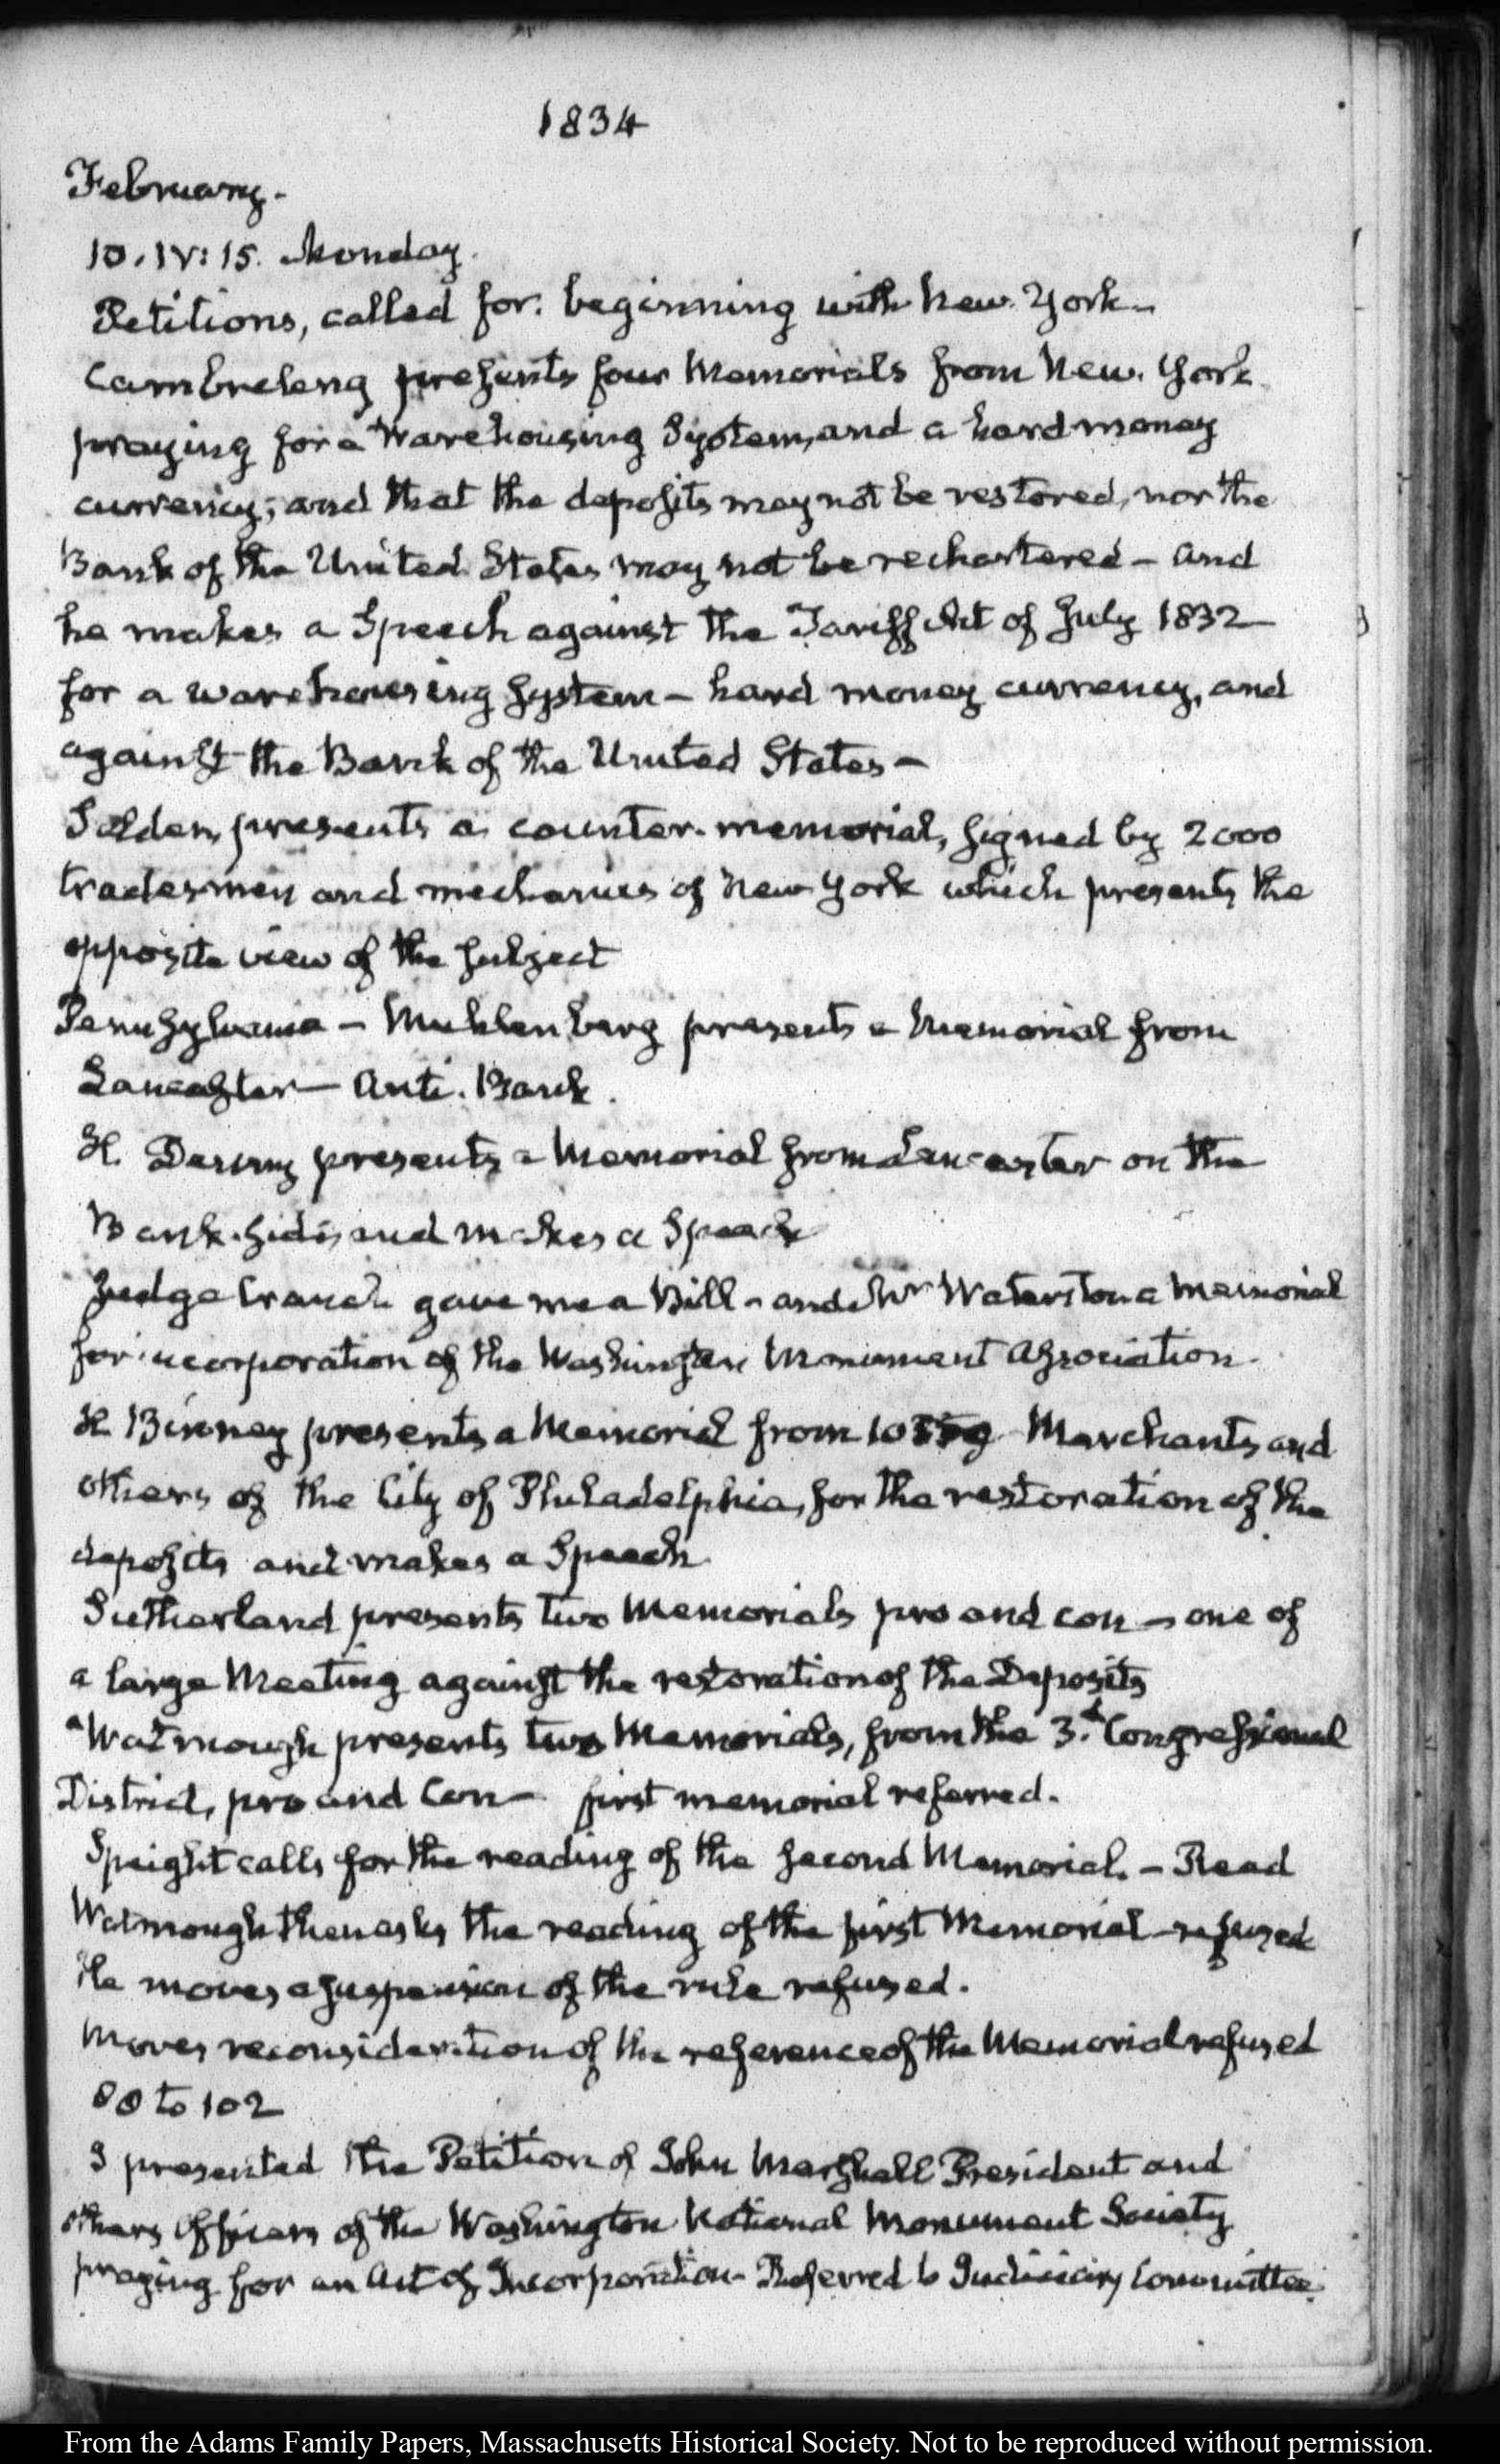 1834
February.
10. IV: 15. Monday.
Petitions, called for. beginning with New York—
Cambreleng presents four Memorials from New. York
praying for a Warehousing System, and a hard money
currency; and that the deposits may not be restored, nor the
Bank of the United States may not be rechartered — and
he makes a Speech against the Tariff Act of July 1832—
for a warehousing system — hard money currency, and
against the Bank of the United States —
Selden, presents a counter-memorial, signed by 2000
tradesmen and mechanics of New York which presents the
opposite view of the subject
Pennsylvania — Muhlenberg presents a Memorial from
Lancaster — Anti. Bank.
H. Denny presents a Memorial from Lancaster on the
Bank side, and makes a Speech
Judge Cranch gave me a Bill — and Mr Waterston a Memorial
for incorporation of the Washington Monument Association.
H Binney presents a Memorial from Merchants and
others of the City of Philadelphia, for the restoration of the
deposits and makes a Speech
Sutherland presents two Memorials pro and con — one of
a large Meeting against the restoration of the Deposits
Watmough presents two Memorials, from the 3.d Congressional
District, pro and Con — first memorial referred.
Speight calls for the reading of the second Memorial. — Read
Watmough then asks the reading of the first Memorial — refused
He moves a suspension of the rule refused.
Moves reconsideration of the reference of the Memorial refused
88 to 102
I presented the Petition of John Marshall President and
others officers of the Washington National Monument Society
praying for an Act of Incorporation — Referred to Judiciary Committee.
From the Adams Family Papers, Massachusetts Historical Society. Not to be reproduced without permission.